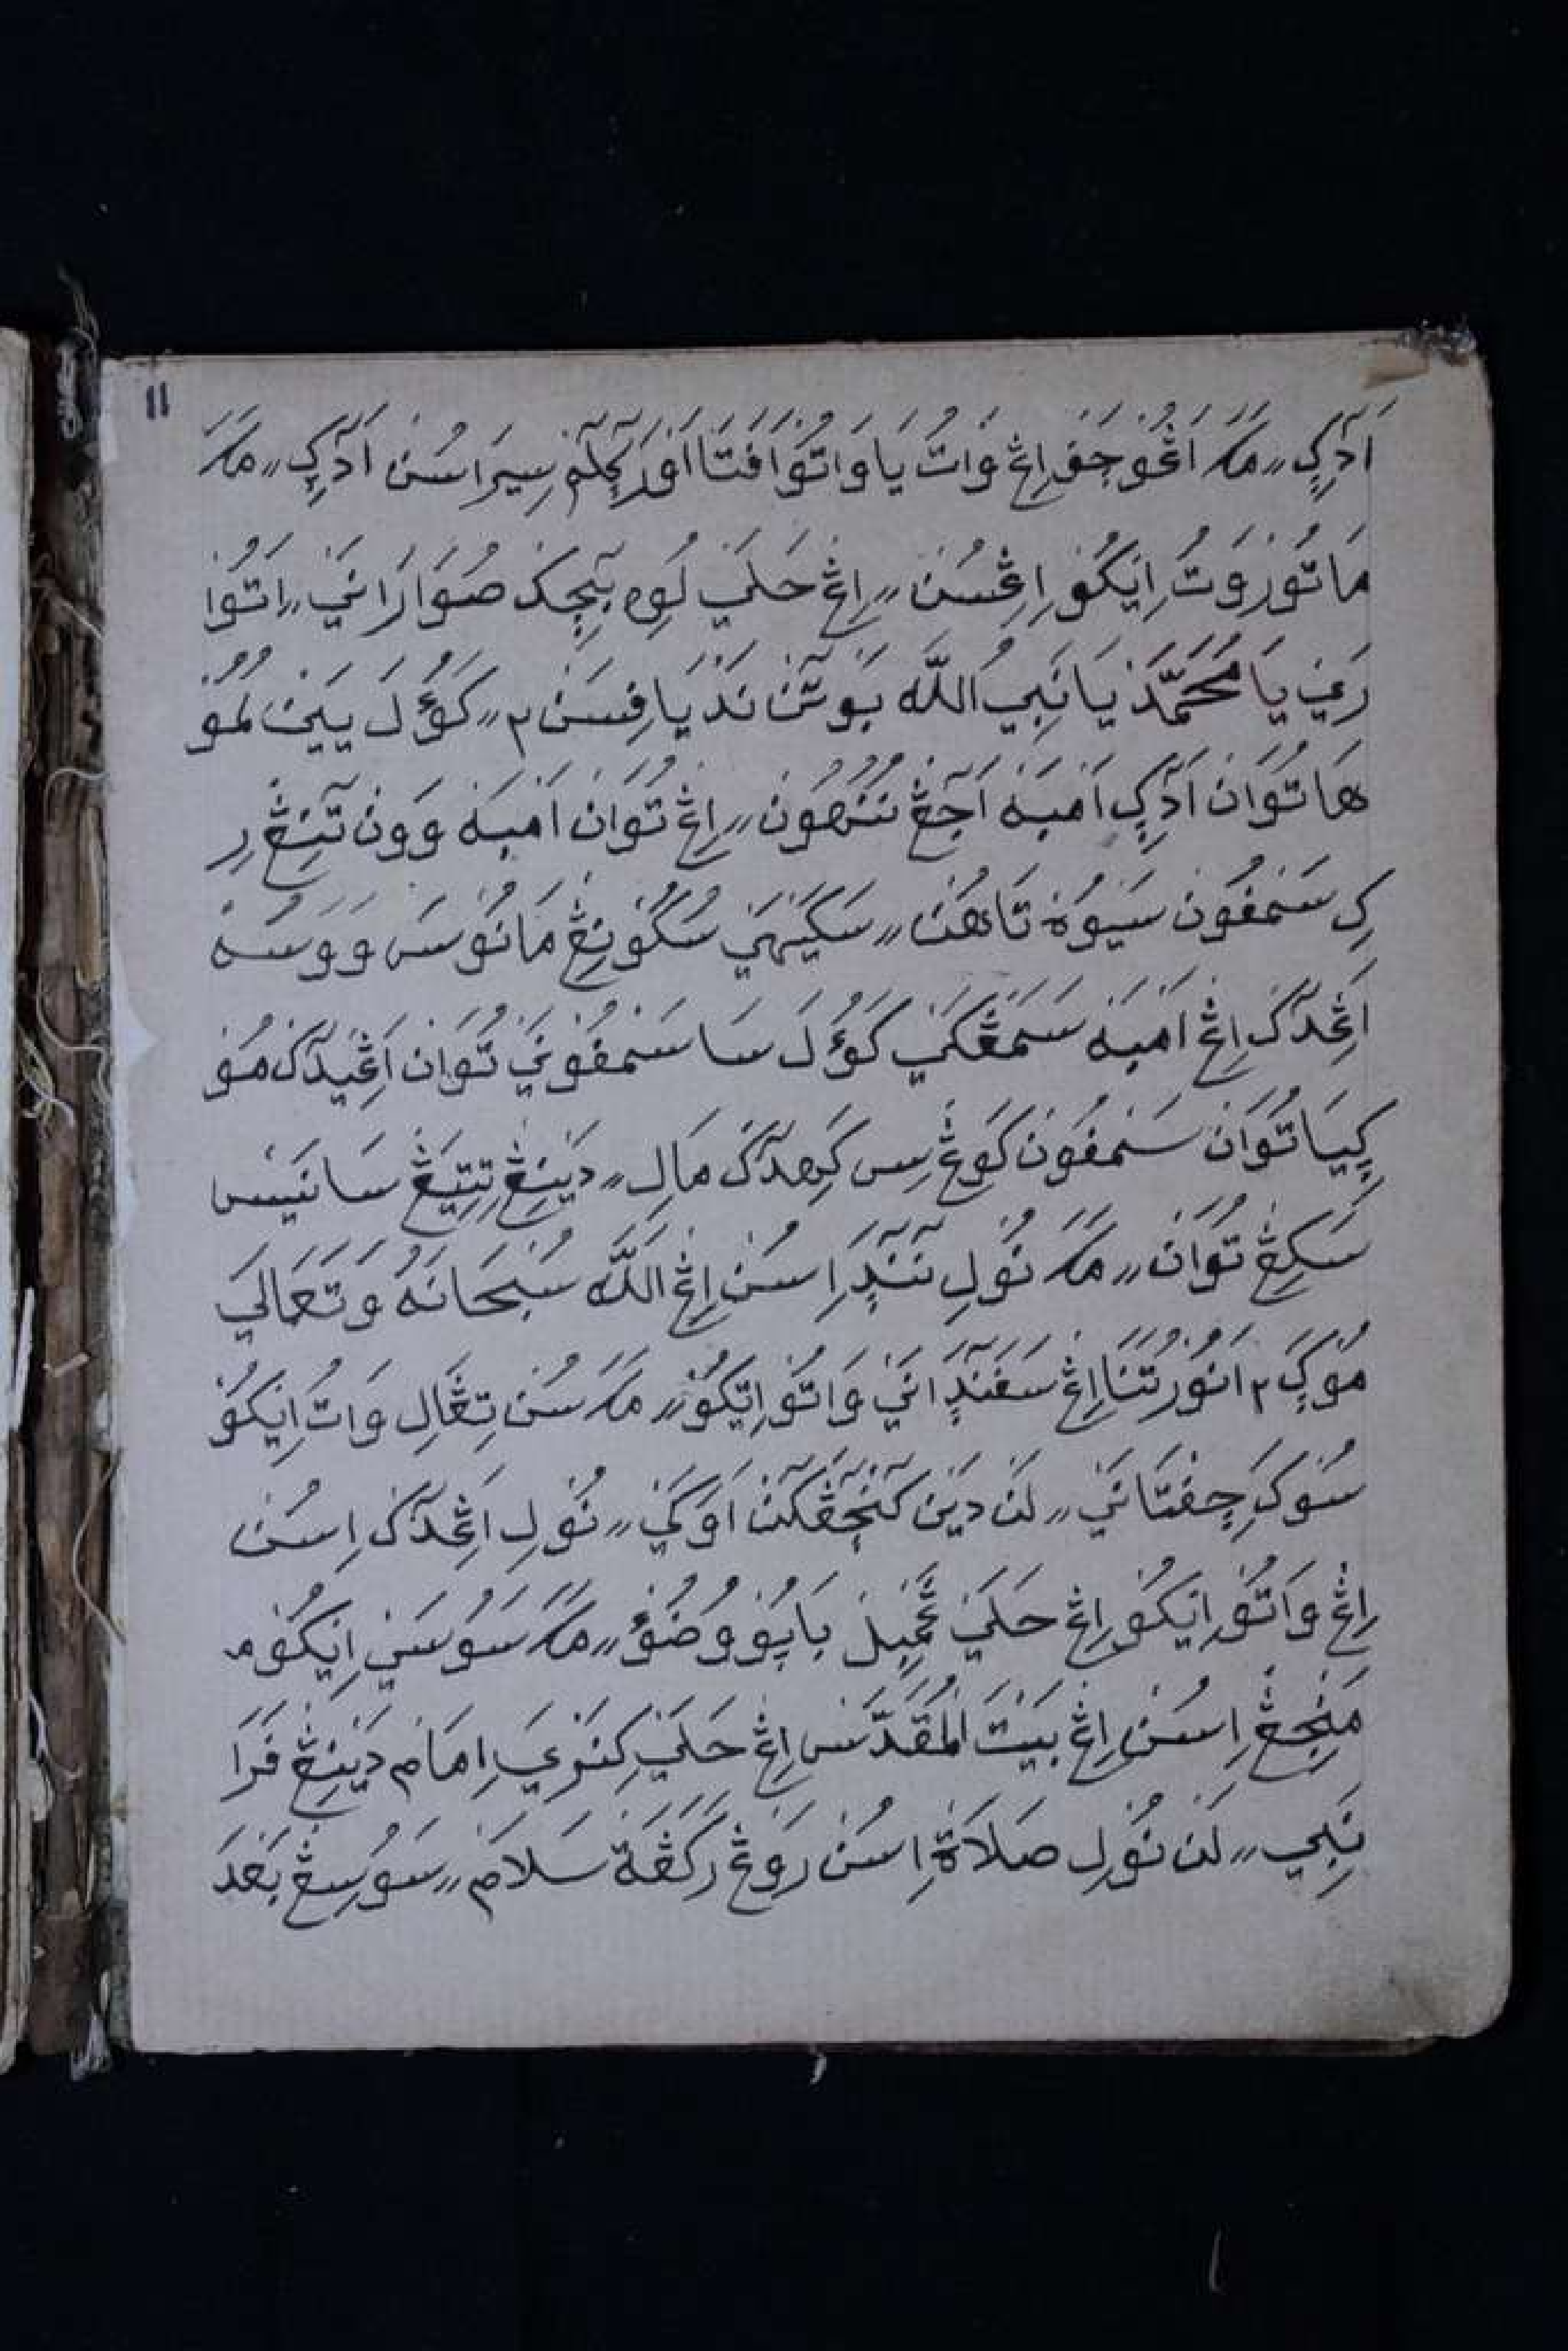 11
اَدَكِ ⸗ مَكَ اَڠُوجَف اِڠ وَاتُ يَا وَاتُو اَفَتَا اَوْرَ كِلَمْ سِيرَا سُنْ اَدَكِ ⸗ مَكَ
مَاتُوْر وَتُ اِيَكُوْ اِڠْسُنْ ⸗ اِڠ حَلَيْ لُوِه بٓچِكْ صُوَارَانَيْ ⸗ اَتُوْا
رَيْ يَا مُحَمَّدْ يَا نَبِيُ اللَّه بَوتٓنْ نَدْيَا فِسَنْ ٢ ⸗ كَوُلَ يَيْنْ لُمُوْ
هَا تُوَانْ اَدَكِ اَمْبَهْ اَجٓڠْ نُنُهُونْ ⸗ اِڠ تُوَانْ اَمْبَهْ وَوَنْ تٓنِڠْ رِ
كِ سَمْفُوْنْ سَيَوُة تَاهُنْ ⸗ سَكَيْهَيْ سُكُوْنِڠْ مَانُوْسَ وَوُسَهْ
اَڠِدَكْ اِڠ اَمْبَهْ سَمَڠْكَيْ كَوُلَ سَا سَمْفُوْنَيْ تُوَانْ اَڠِيْدَكْ مُوْ
كِيَا تُوَانْ سَمْفُوْنْ كَوَڠْ سِسِ كَهِدَكْ مَالِ ⸗ دَيْنِڠْ تِتِيَڠْ سَانَيْس
سَكِڠْ تُوَانْ ⸗ مَكَ نُوْلِ نَنٓدَا اِسُنْ اِڠ اللَّه سُبْحَانَهُ وَتَعَالَيَ
مُوْكَ ٢ اَنُوْرُتَنَا اِڠ سَفَنٓدَانَيْ وَاتُوْ اِيْكُوْ ⸗ مَكَ سُنْ تِڠَالِ وَاتُ اِيْكُوْ
سُوْكَ چِفْتَانَيْ ⸗ لَنْ دَيْنْ كَنْچٓڠَكٓنْ اَوَكَيْ ⸗ نُوْلِ اَڠِدَكْ اِسُنْ
اِڠ وَاتُوْ اِيْكُوْ اِڠ حَلَيْ ڠَمْبِلْ بَاپُوْ وُضُوْءْ ⸗ مَكَ سَوُسَيْ اِيْكُوْ مـ
مَنْجِڠْ اِسُنْ اِڠ بَيْتَ الْمُقَدَّسْ اِڠ حَلَيْ كِنَرْيَ اِمَامْ دَيْنِڠْ فَرَا
نَبِي ⸗ لَنْ نُوْلِ صَلَاةْ اِسُنْ رَوَڠْ رَكَعَةْ سَلَامْ ⸗ سَوُسِڠْ بَعْدَ